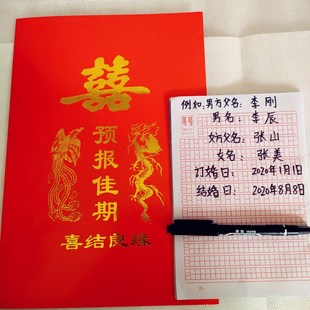 囍
预报佳期
喜结良缘
例如,男方父名:李刚
男名:李辰
女方父名:张山
女名:张美
订婚日:2020年1月1日
结婚日:2020年8月8日